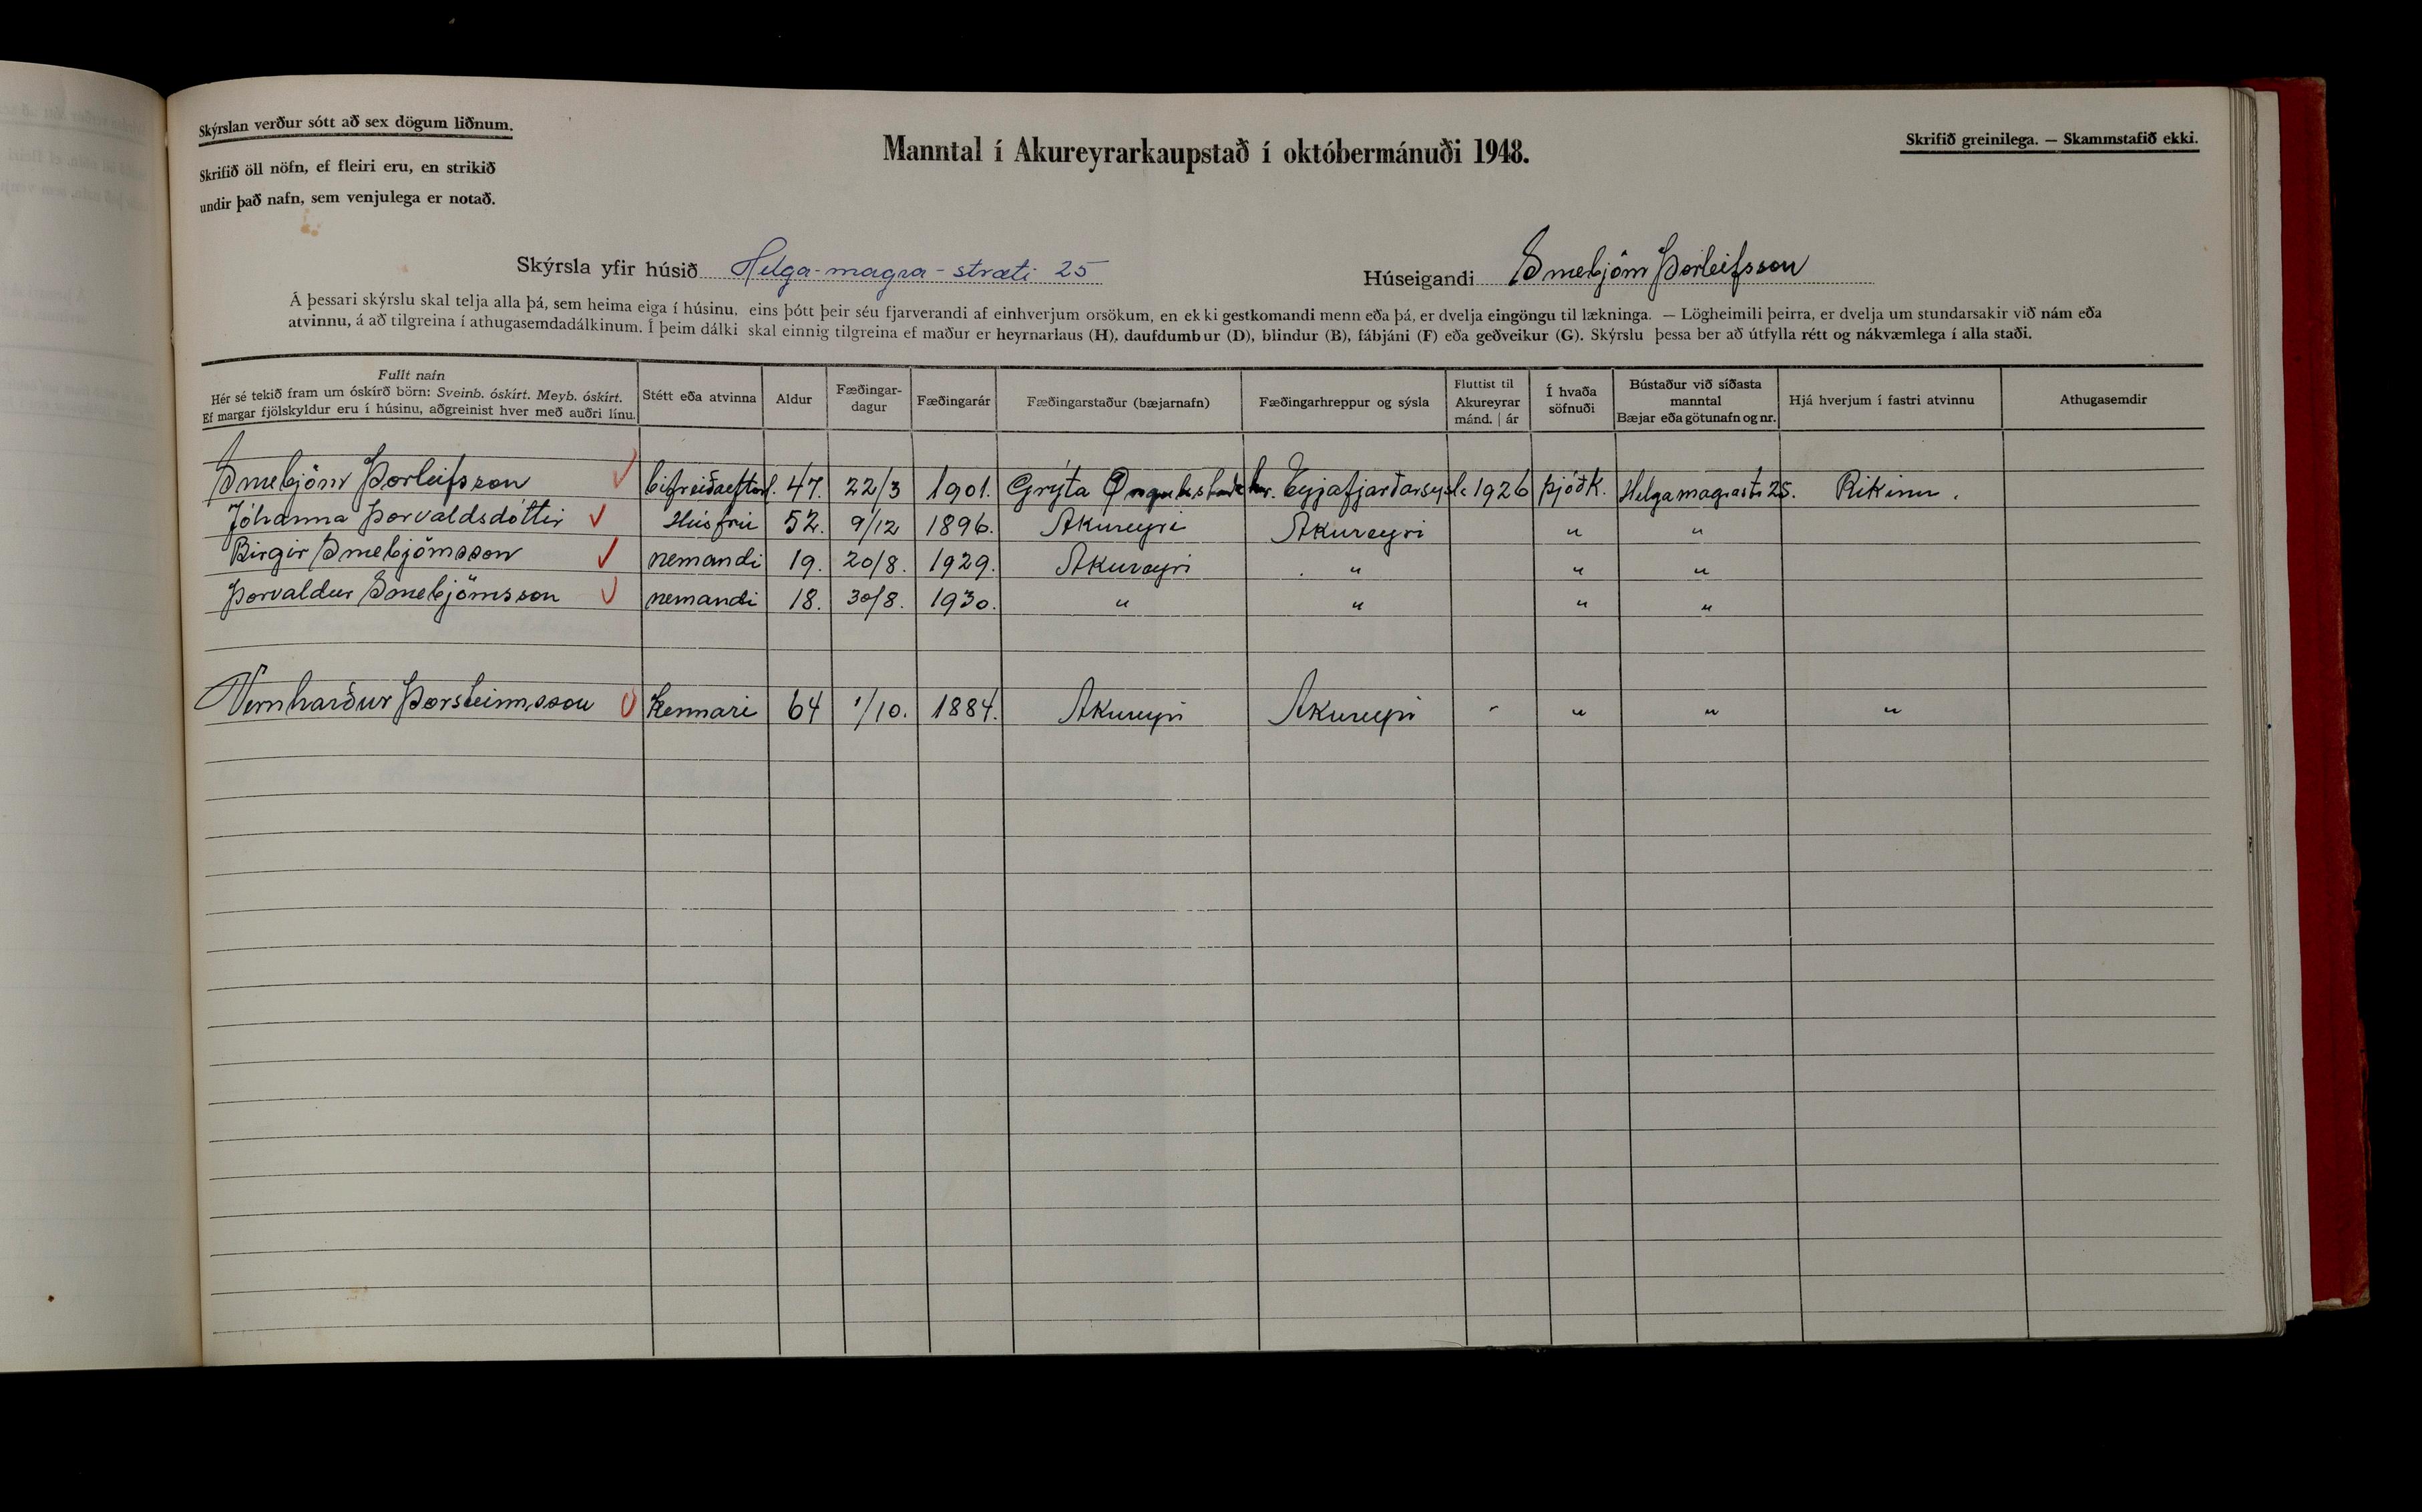 Skýrslan verður sótt að sex dögum liðnum.
Skrifið öll nöfn, ef fleiri eru, en strikið
undir það nafn, sem venjulega er notað.
Manntal í Akureyrarkaupstað í októbermánuði 1948.
Skrifið greinilega. — Skammstafið ekki.
Skýrsla yfir húsið Helga-magra-stræti 25
Húseigandi Snæbjörn Þorleifsson
Á þessari skýrslu skal telja alla þá, sem heima eiga í húsinu, eins þótt þeir séu fjarverandi af einhverjum orsökum, en ekki gestkomandi menn eða þá, er dvelja eingöngu til lækninga. — Lögheimili þeirra, er dvelja um stundarsakir við nám eða
atvinnu, á að tilgreina í athugasemdadálkinum. Í þeim dálki skal einnig tilgreina ef maður er heyrnarlaus (H), daufdumbur (D), blindur (B), fábjáni (F) eða geðveikur (G). Skýrslu þessa ber að útfylla rétt og nákvæmlega í alla staði.
Fullt nafn
Hér sé tekið fram um óskírð börn: Sveinb. óskírt. Meyb. óskírt.
Ef margar fjölskyldur eru í húsinu, aðgreinist hver með auðri línu.
Stétt eða atvinna
Aldur
Fæðingar-
dagur
Fæðingarár
Fæðingarstaður (bæjarnafn)
Fæðingarhreppur og sýsla
Fluttist til
Akureyrar
mánd. | ár
Í hvaða
söfnuði
Bústaður við síðasta
manntal
Bæjar eða götunafn og nr.
Hjá hverjum í fastri atvinnu
Athugasemdir
Snæbjörn Þorleifsson bifreiðaeftirl. 47. 22/3 1901. Grýta Öngulsstaðahr. Eyjafjarðarsýsl. 1926 þjóðk. Helgamagrastr 25. Ríkinu.
Jóhanna Þorvaldsdóttir Húsfrú 52. 9/12 1896. Akureyri Akureyri " "
Birgir Snæbjörnsson nemandi 19. 20/8. 1929. Akureyri " " "
Þorvaldur Snæbjörnsson nemandi 18. 30/8. 1930. " " " "
Vernharður Þorsteinsson Kennari 64 1/10. 1884. Akureyri Akureyri - " " "